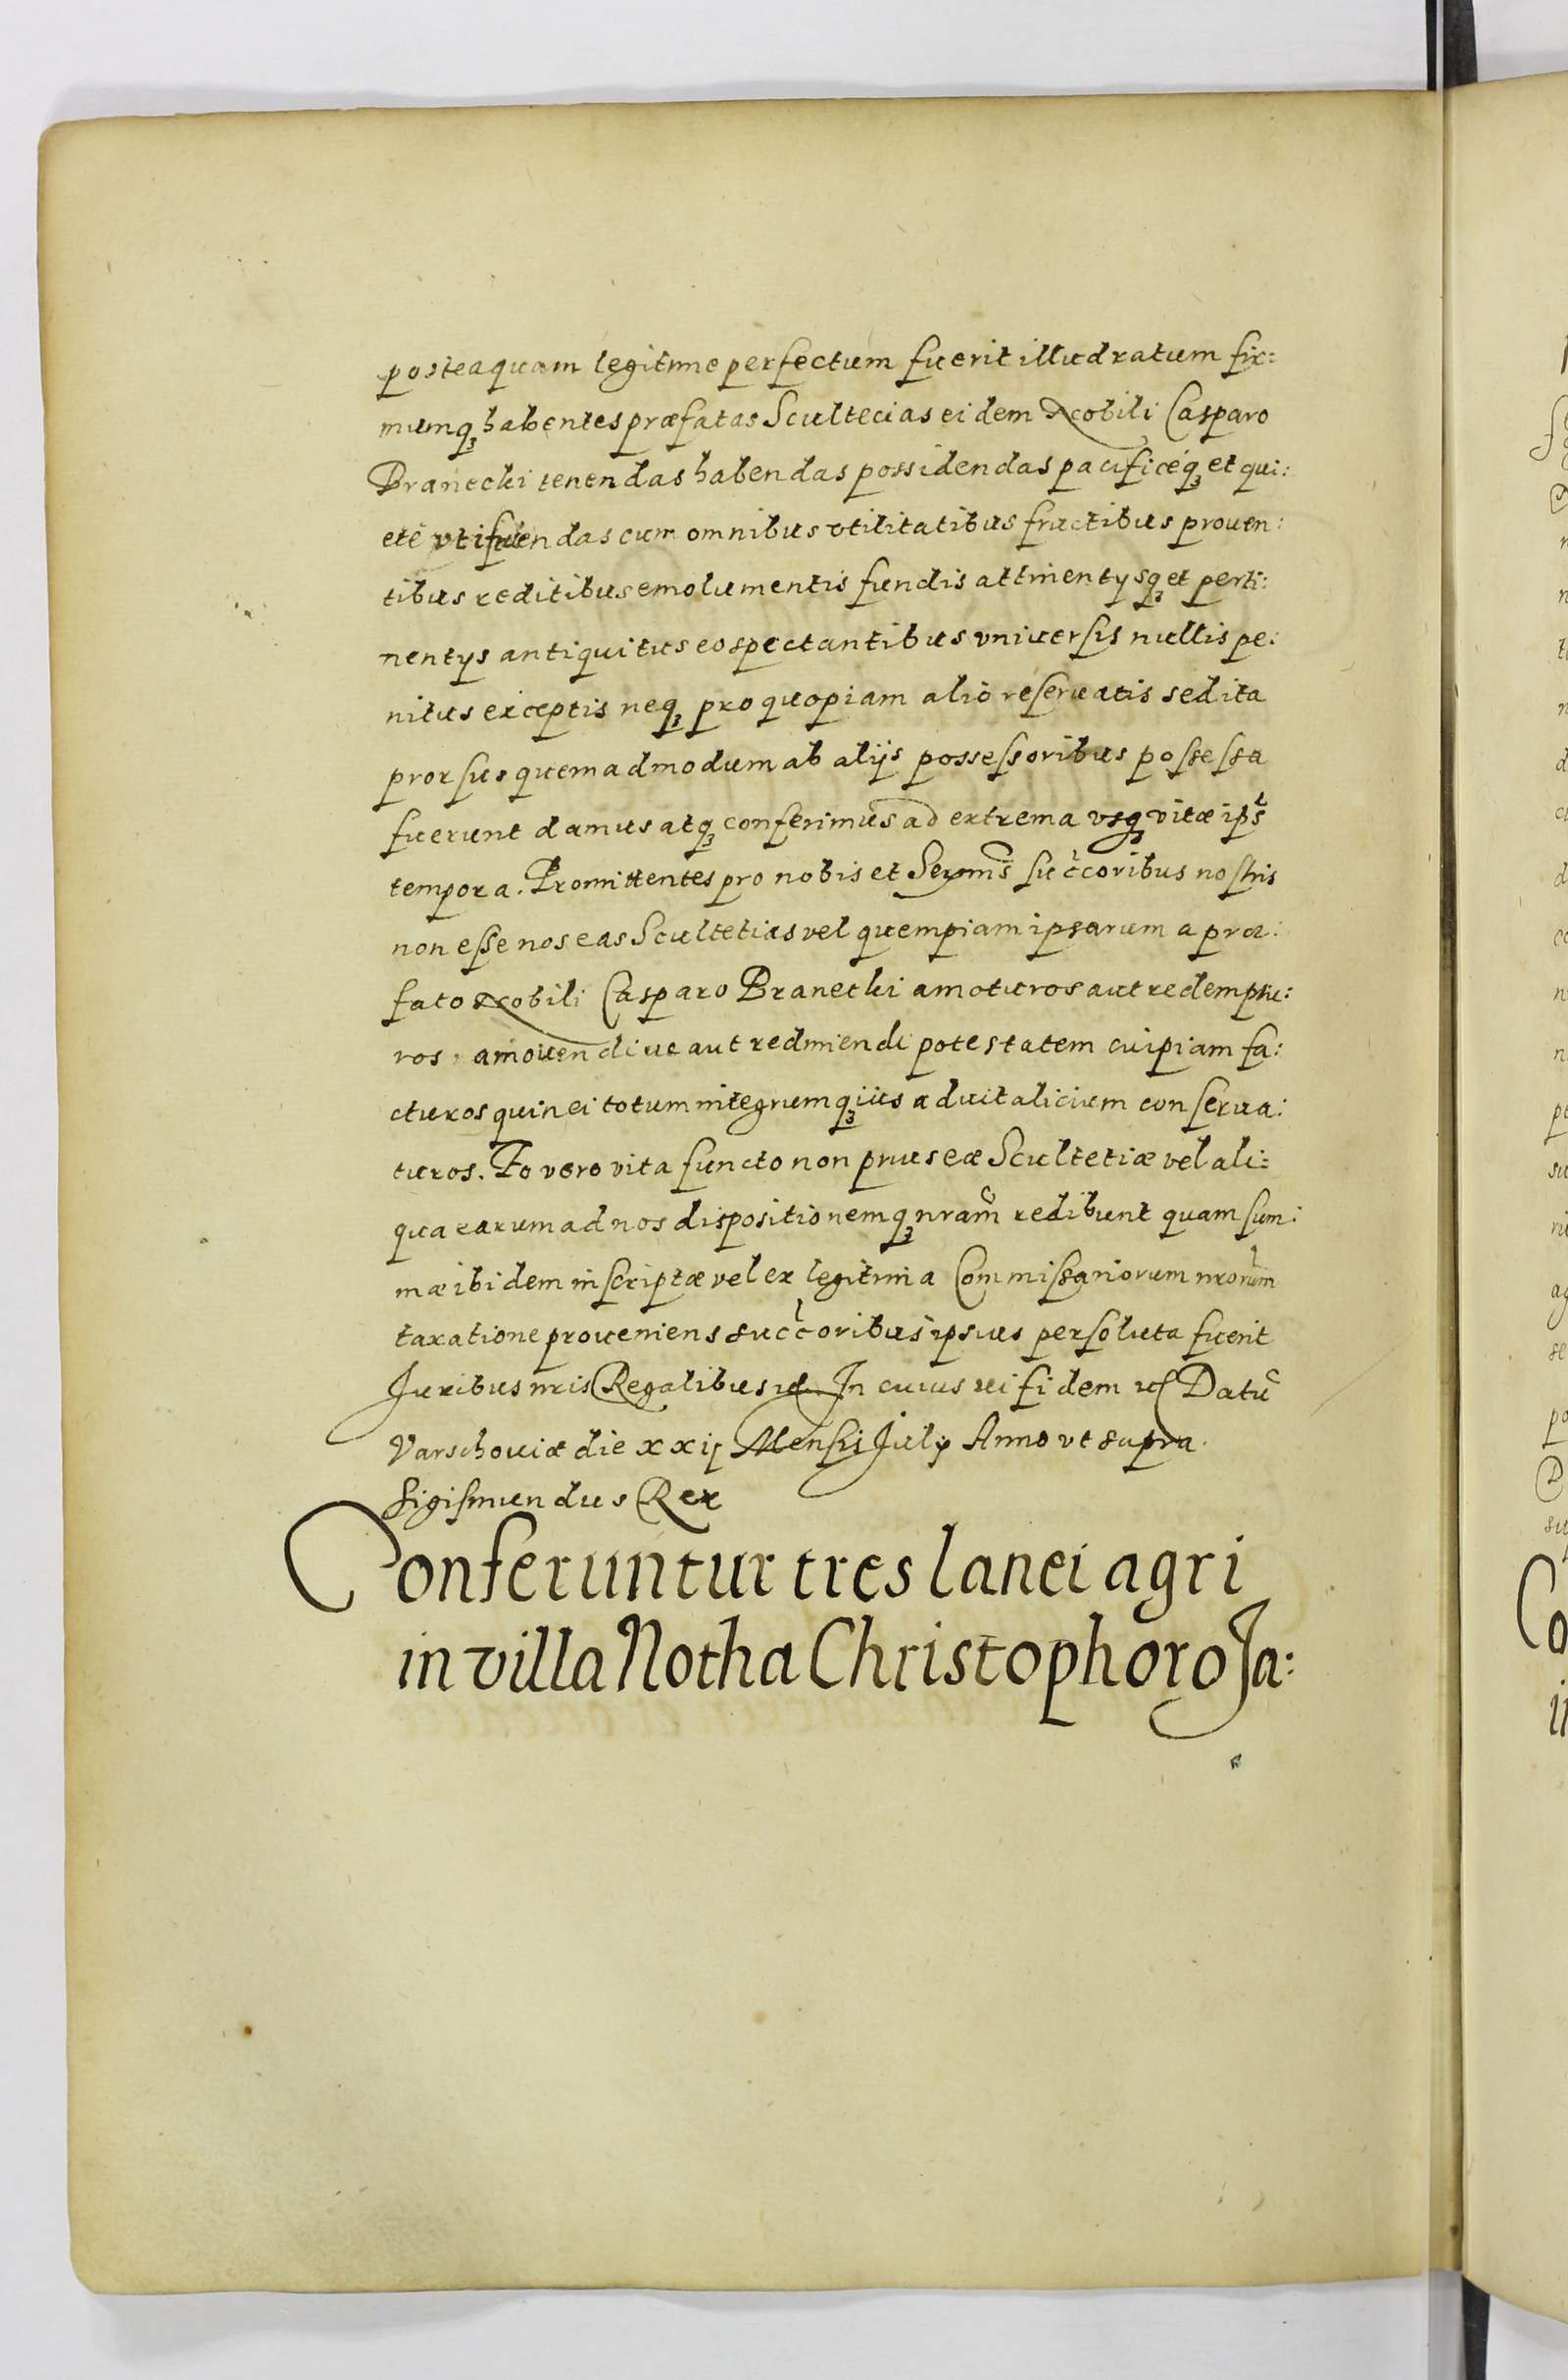 posteaquam legitime perfectum fuerit illud ratum fir:
mumq₃ habentes præfatas Scultecias eidem Nobili Casparo
Branecki tenendas habendas possidendas pacificéq₃ et qui:
eté vtifruendas cum omnibus vtilitatibus fructibus prouen:
tibus reditibus emolumentis fundis attinentysq₃ et perti:
nentys antiquitus eo spectantibus vniuersis nullis pe:
nitus exceptis neq₃ pro quopiam alio reseruatis sed ita
prorsus quemadmodum ab alijs possessoribus possessa
fuerunt damus atq₃ conferimus ad extrema vsq₃ vitæ ips
tempora. Promittentes pro nobis et Sermis succoribus nostris
non esse nos eas Scultetias vel quempiam ipsarum a præ:
fato Nobili Casparo Branecki amoturos aut redemptu:
ros, amouendi ue aut redimendi potestatem cuipiam fa:
cturos quin ei totum integrumq₃ ius aduitalicium conserua:
turos. Eo vero vita functo non prius eæ Scultetiæ vel ali:
qua earum ad nos dispositionemq₃ nram redibunt quam sum:
mæ ibidem inscriptæ vel ex legitima Commissariorum nrorum
taxatione proueniens succoribus ipsius persoluta fuerit
Juribus nris Regalibus In cuius rei fidem Datu
Varschouiæ die xxij Mensis July Anno vt supra.
Sigismundus Rex
Conferuntur tres lanei agri
in villa Notha Christophoro Ja: